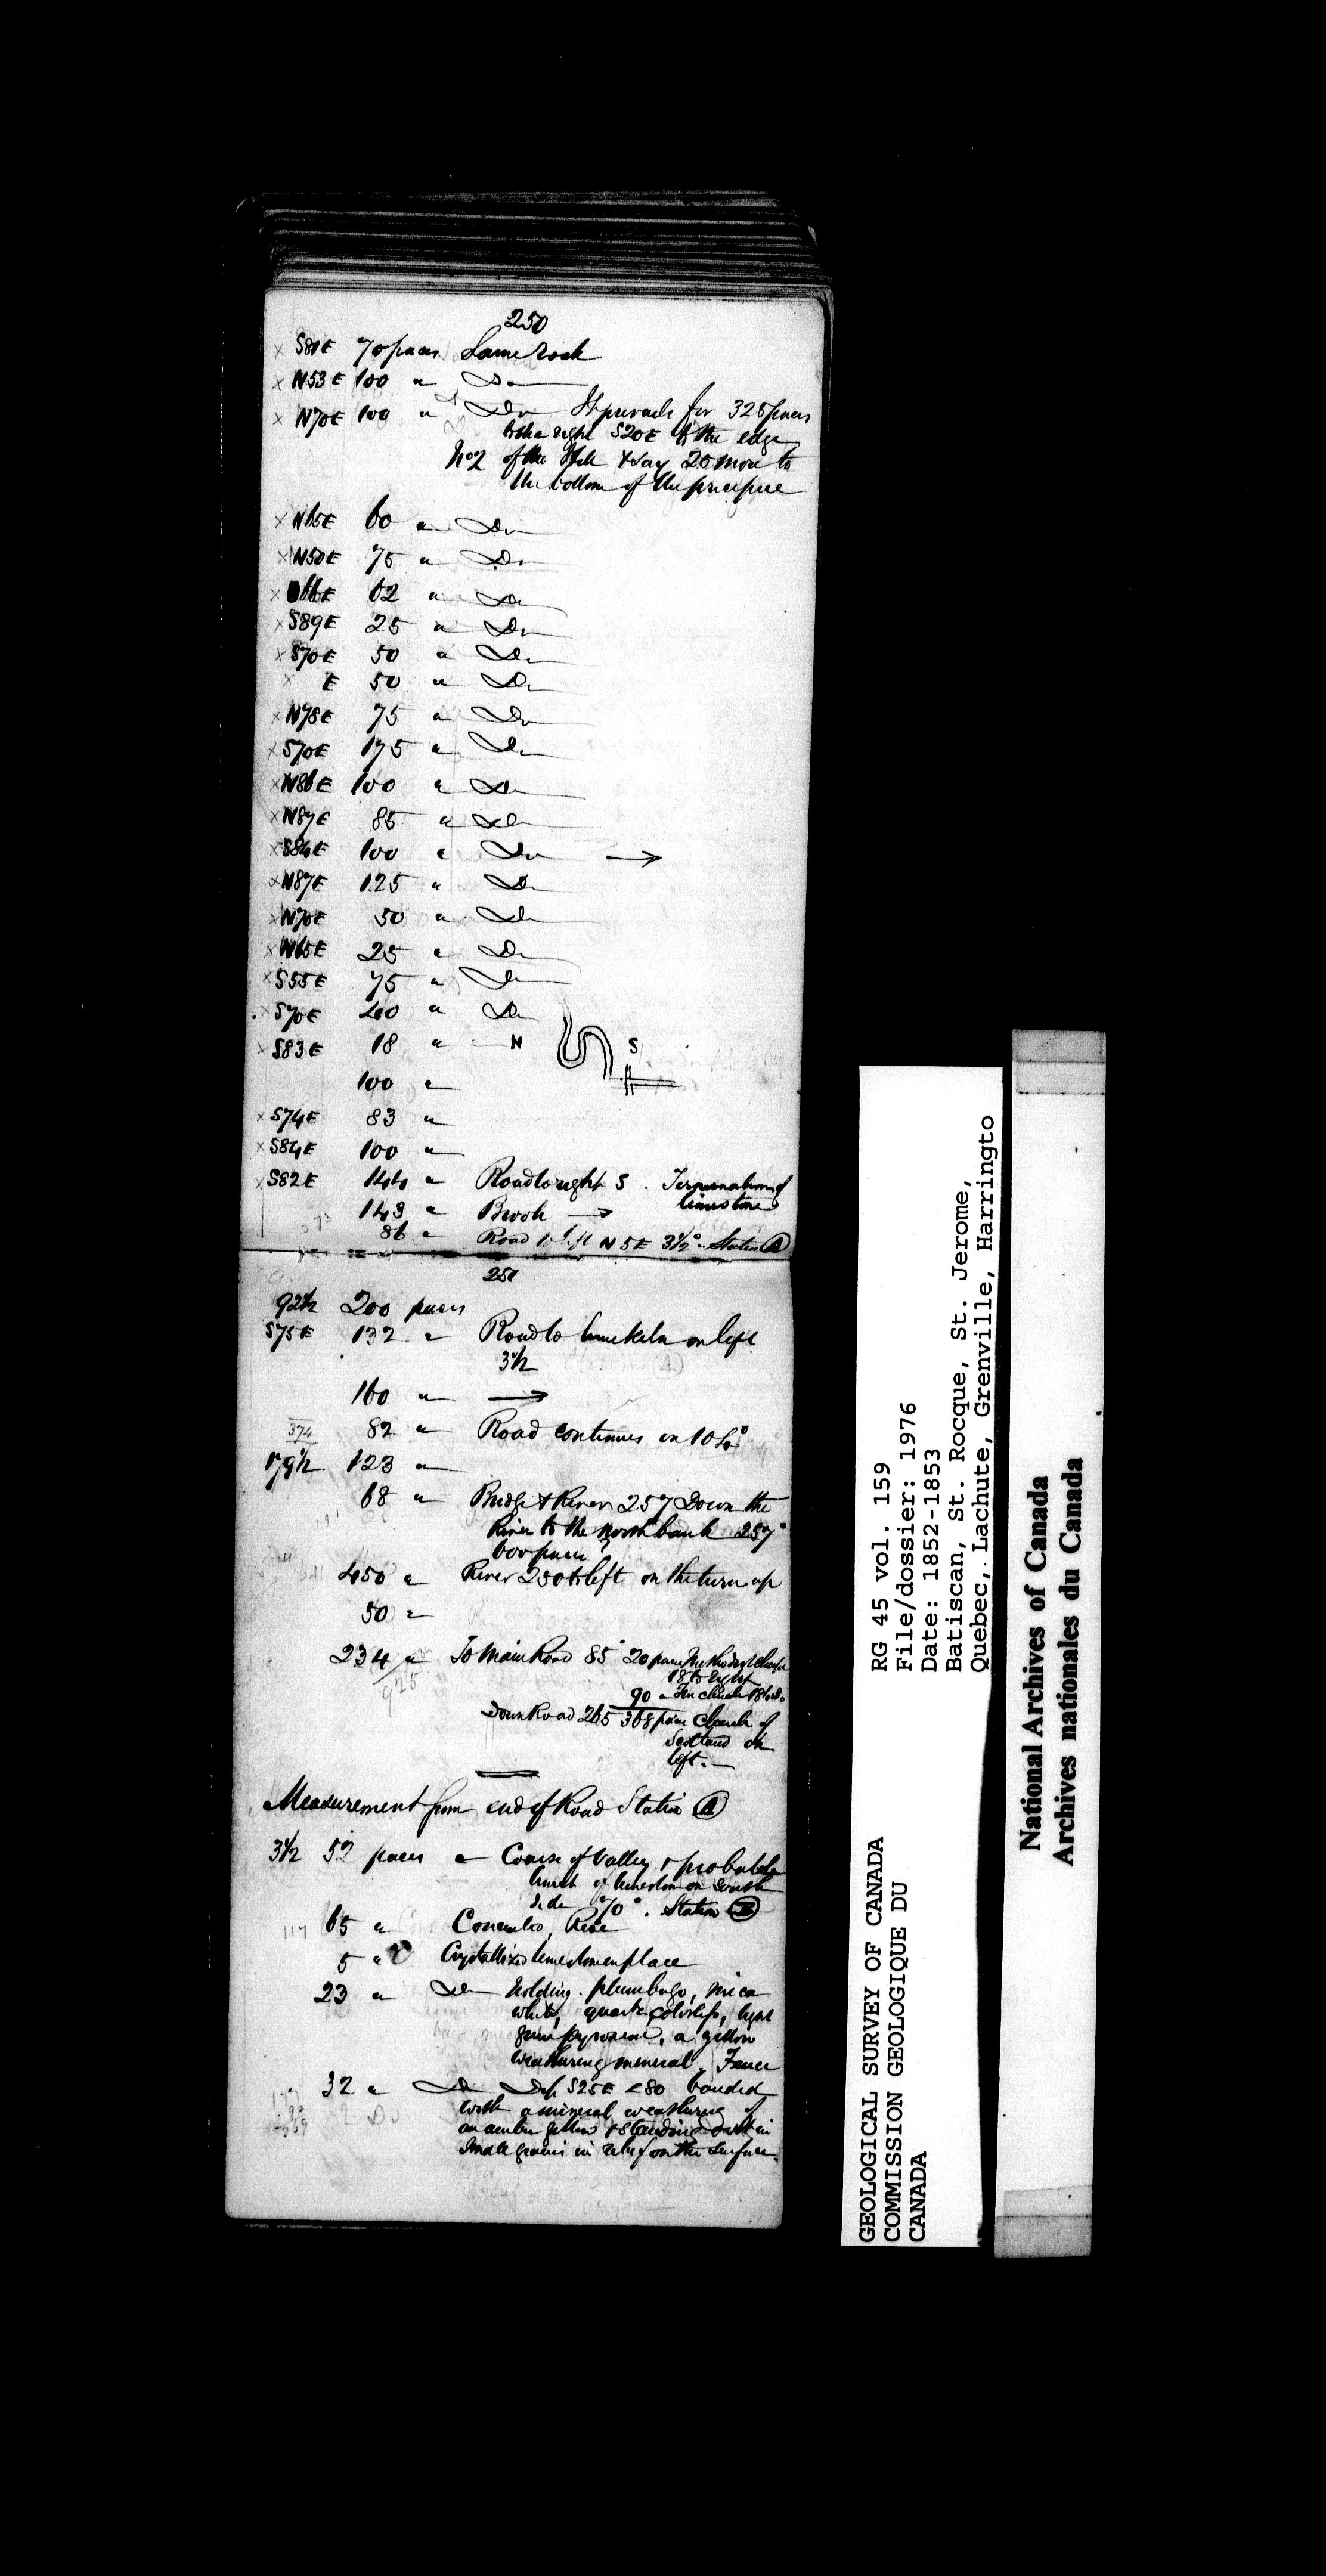 250
x S81E 70 paces Same rock
x N53E 100 " Do
x N70E 100 " Do It prevails for 325 paces
to the right S20E to the edge
No 2 of the Hill & say 25 more to
the bottom of the precipice
x N65E 60 " Do
x N50E 75 " Do
x 62 " Do
x S89E 25 " Do
x S70E 50 " Do
x E 50 " Do
x N78E 75 " Do
x S70E 175 " Do
x N86E 100 " Do
x N87E 85 " Do
x S84E 100 " Do →
x N87E 125 " Do
x N70E 50 " Do
x N65E 25 " Do
x S55E 75 " Do
x S70E 200 " Do
x S83E 18 " N S
100 "
x S74E 83 "
x S84E 100 "
x S82E 144 " Road to right S. Termination of
limestone
143 " Brook →
86 " Road to left N5E 3½° Station A
251
92½ 200 paces
S75E 132 " Road to lime kiln on left
3½
160 " →
374 82 " Road continues on 104°
179½ 123 "
68 " Bridge & River 257 Down the
River to the north bank 257°
600 paces?
450 " River 250 to left on the turn up
50 "
234 " To Main Road 85° 20 paces Methodist Church
18 to right
925
90 " Free church 186 do
Down Road 265 368 paces Church of
Scotland on
left.
Measurement from end of Road Station A
3½ 52 paces " Course of Valley & probable
limit of limestone on South
side 70°. Station B
117 65 " Concealed, Rise
5 " Crystallized limestone in place
23 " Do holding plumbago, mica
white, quartz colorless, light
green pyroxene, a yellow
weathering mineral.
32 " Do Dip S25E <80 banded
with a mineral weathering of
an amber yellow & standing out in
small grains in relief on the surface.
GEOLOGICAL SURVEY OF CANADA
COMMISSION GEOLOGIQUE DU
CANADA
RG 45 vol. 159
File/dossier: 1976
Date: 1852-1853
Batiscan, St. Rocque, St. Jerome,
Quebec, Lachute, Grenville, Harringto
National Archives of Canada
Archives nationales du Canada